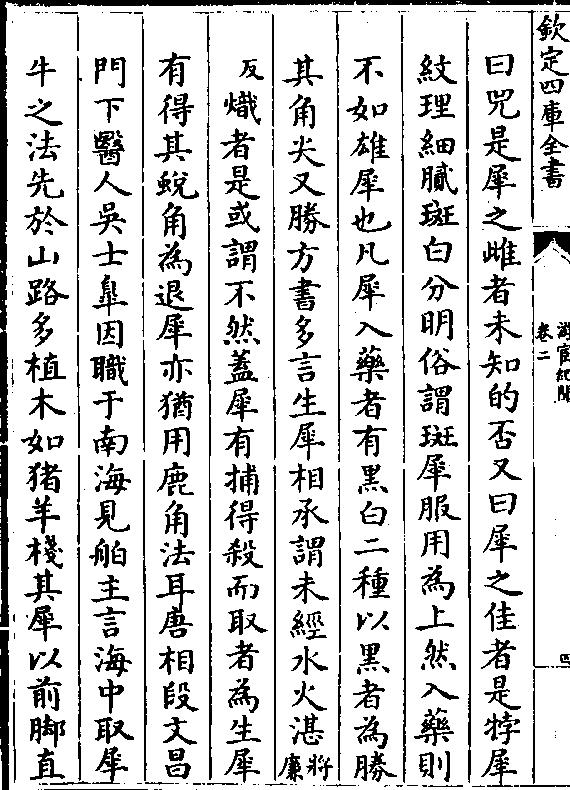 欽定四庫全書
游宦紀聞
卷二
四
曰兕是犀之雌者未知的否又曰犀之佳者是牸犀
紋理細膩斑白分明俗謂斑犀服用為上然入藥則
不如雄犀也凡犀入藥者有黑白二種以黑者為勝
其角尖又勝方書多言生犀相承謂未經水火湛將廉
反熾者是或謂不然蓋犀有捕得殺而取者為生犀
有得其蛻角為退犀亦猶用鹿角法耳唐相段文昌
門下醫人吳士皐因職于南海見舶主言海中取犀
牛之法先於山路多植木如猪羊棧其犀以前脚直